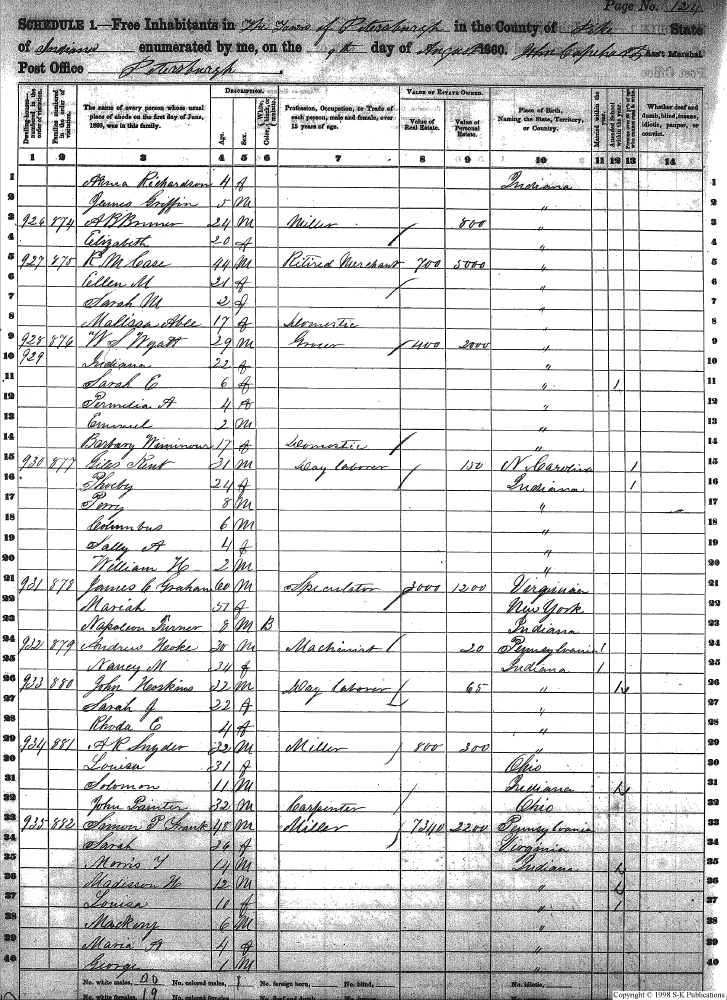 Page No. 124
SCHEDULE 1.—Free Inhabitants in The Town of Petersburgh in the County of Pike State
of Indiana enumerated by me, on the 9th day of August 1860. John Capehart Ass't Marshal.
Post Office Petersburgh.
Dwelling-houses numbered in the order of visitation. Families numbered in the order of visitation. The name of every person whose usual place of abode on the first day of June, 1860, was in this family. DESCRIPTION. Age. Sex. Color, White, black, or mulatto. Profession, Occupation, or Trade of each person, male and female, over 15 years of age. VALUE OF ESTATE OWNED. Value of Real Estate. Value of Personal Estate. Place of Birth, Naming the State, Territory, or Country. Married within the year. Attended School within the year. Whether deaf and dumb, blind, insane, idiotic, pauper, or convict.
1 2 3 4 5 6 7 8 9 10 11 12 13 14
1 Richardson 4 f Indiana 1
2 James Griffin 5 M " 2
3 926 874 A B Bonner 24 M Miller 800 " 3
4 Elizabeth 20 f " 4
5 927 875 R M Case 44 M Retired Merchant 700 5000 " 5
6 Ellen M 21 f " 6
7 Sarah M 2 f " 7
8 Malissa Able 17 f Domestic " 8
9 928 876 W S Wyatt 29 M Grocer 400 2000 " 9
10 929 Indiana 22 f " 10
11 Sarah E 6 f " 1 11
12 Permelia A 4 f " 12
13 Emanuel 2 M " 13
14 Barbary 17 f Domestic " 14
15 930 877 Giles Kent 31 M Day laborer 150 N Carolina 1 15
16 Phoeby 24 f Indiana 1 16
17 Perry 8 M " 17
18 Columbus 6 M " 18
19 Sally A 4 f " 19
20 William H 2 M " 20
21 931 878 James C Graham 60 M Speculator 3000 1200 Virginia 21
22 Mariah 51 f New York 22
23 Napoleon Turner 8 M B Indiana 23
24 932 879 Andrew 30 M Machinist 20 Pennsylvania 1 24
25 Nancy M 34 f Indiana 1 25
26 933 880 John Hoskins 22 M Day laborer 65 " 26
27 Sarah J 22 f " 27
28 Rhoda E 4 f " 28
29 934 881 A R Snyder 32 M Miller 800 300 " 29
30 Louisa 31 f Ohio 30
31 Solomon 11 M Indiana 1 31
32 John Painter 32 M Carpenter Ohio 32
33 935 882 Simon P Frank 40 M Miller 7340 2200 Pennsylvania 33
34 Sarah 36 f Virginia 34
35 Morris Y 14 M Indiana 1 35
36 Madisson H 12 M " 1 36
37 Louisa 10 f " 1 37
38 Mackery 6 M " 38
39 Maria A 4 f " 39
40 George 1 M " 40
No. white males, 20 No. colored males, 1 No. foreign born, No. blind, No. idiotic,
No. white females, 19
Copyright © 1998 S-K Publications